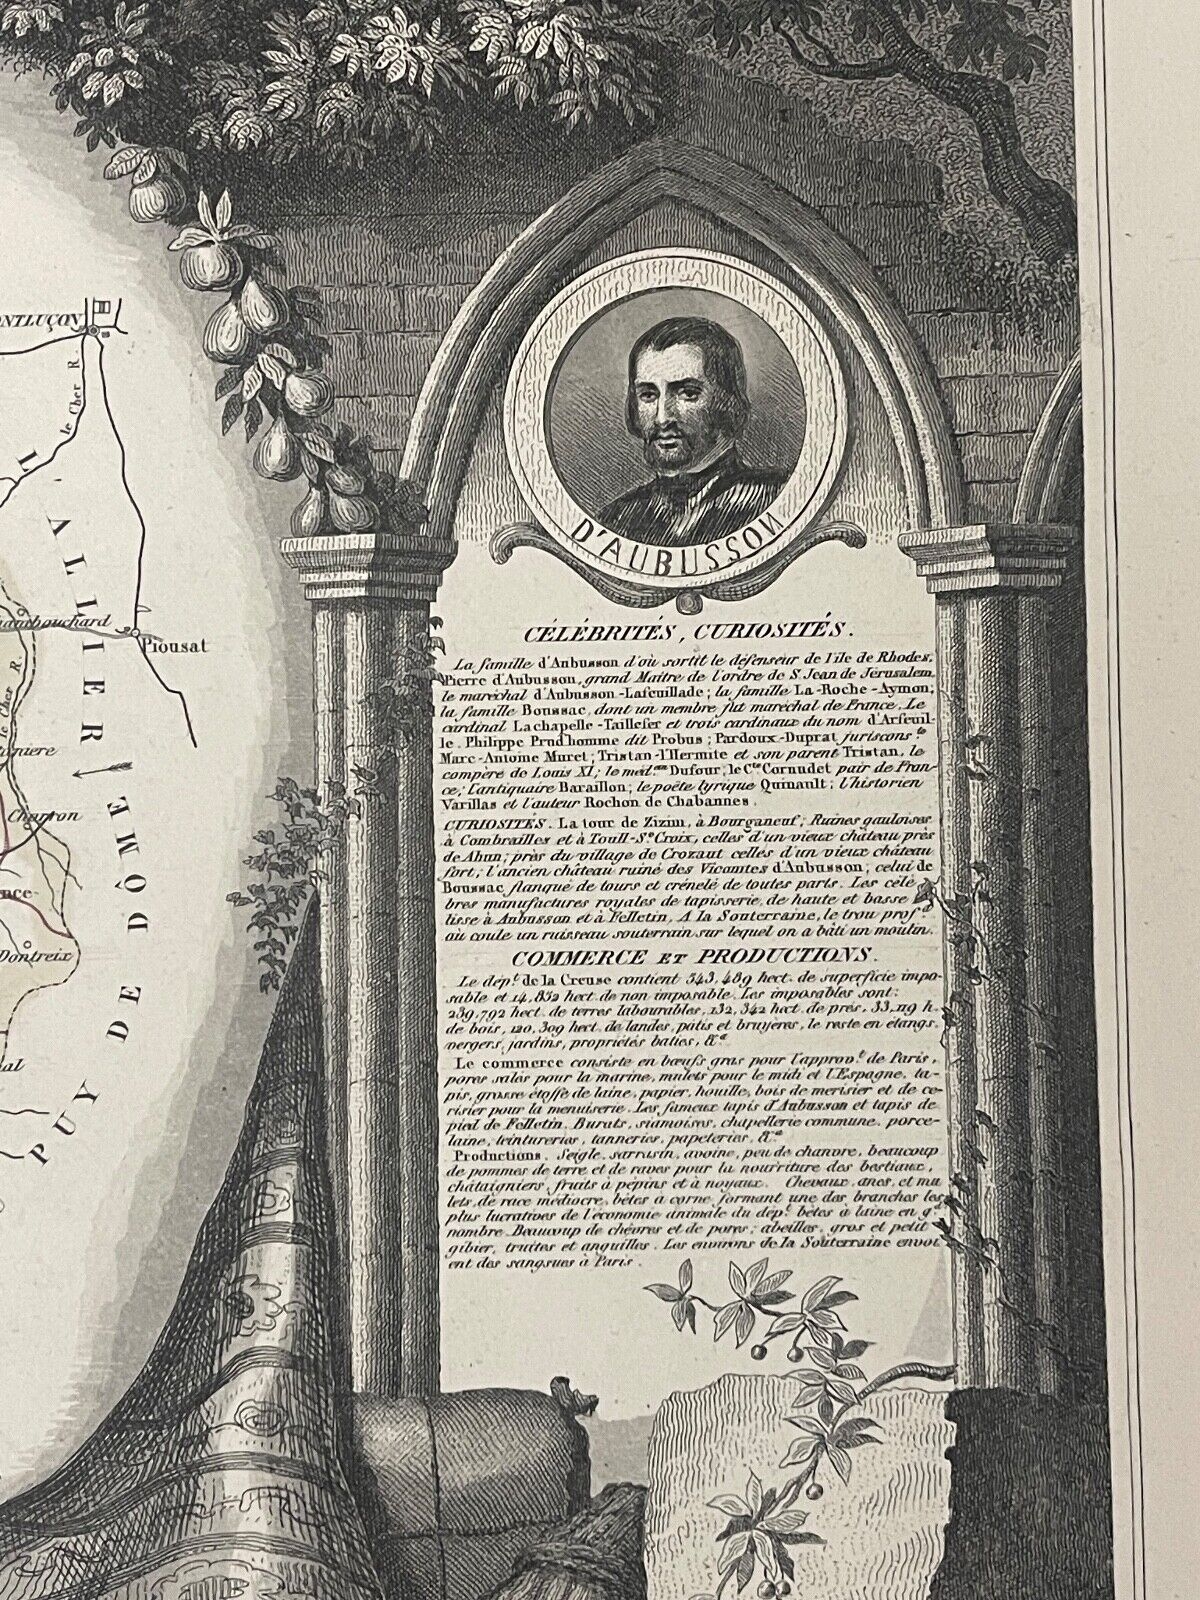 D'AUBUSSON
CÉLÉBRITÉS, CURIOSITÉS.
La famille d'Aubusson d'où sortit le défenseur de l'île de Rhodes,
Pierre d'Aubusson, grand Maître de l'ordre de S. Jean de Jérusalem,
le maréchal d'Aubusson-Lafeuillade; la famille La-Roche-Aymon;
la famille Boussac, dont un membre fut maréchal de France. Le
cardinal Lachapelle-Taillefer et trois cardinaux du nom d'Arfeuil-
le. Philippe Prudhomme dit Probus; Pardoux-Duprat jurisconste
Marc-Antoine Muret; Tristan-l'Hermite et son parent Tristan, le
compère de Louis XI; le méd.en Dufour; le Cte Cornudet pair de Fran-
ce; l'antiquaire Baraillon; le poëte lyrique Quinault; l'historien
Varillas et l'auteur Rochon de Chabannes.
CURIOSITÉS. La tour de Zizim, à Bourganeuf; Ruines gauloises
à Combrailles et à Toull-Ste Croix, celles d'un vieux château près
de Ahun; près du village de Crozant celles d'un vieux château
fort; l'ancien château ruiné des Vicomtes d'Aubusson; celui de
Boussac flanqué de tours et crénelé de toutes parts. Les célè
bres manufactures royales de tapisserie, de haute et basse
lisse à Aubusson et à Felletin. A la Souterraine, le trou prof.d
où coule un ruisseau souterrain sur lequel on a bâti un moulin.
COMMERCE ET PRODUCTIONS.
Le dép.t de la Creuse contient 543,489 hect. de superficie impo-
sable et 14,832 hect. de non imposable. Les imposables sont:
239,792 hect. de terres labourables, 132,342 hect. de prés, 33,119 h.
de bois, 120,309 hect. de landes, pâtis et bruyères, le reste en étangs,
vergers, jardins, propriétés baties, &a
Le commerce consiste en bœufs gras pour l'approv.t de Paris,
porcs salés pour la marine, mulets pour le midi et l'Espagne, ta-
pis, grosse étoffe de laine, papier, houille, bois de merisier et de ce-
risier pour la menuiserie. Les fameux tapis d'Aubusson et tapis de
pied de Felletin. Burats, siamoises, chapellerie commune, porce-
laine, teintureries, tanneries, papeteries, &a
Productions. Seigle, sarrasin, avoine, peu de chanvre, beaucoup
de pommes de terre et de raves pour la nourriture des bestiaux,
châtaigniers, fruits à pépins et à noyaux. Chevaux, anes, et mu
lets, de race médiocre, bêtes à corne, formant une des branches les
plus lucratives de l'économie animale du dép.t bêtes à laine en g.d
nombre. Beaucoup de chèvres et de porcs; abeilles, gros et petit
gibier, truites et anguilles. Les environs de la Souterraine envoi
ent des sangsues à Paris.
ONTLUÇON
le Cher R.
L'ALLIER
hambouchard
Piousat
le Cher R.
niere
Charron
nce
Dontreix
al
PUY DE DÔME